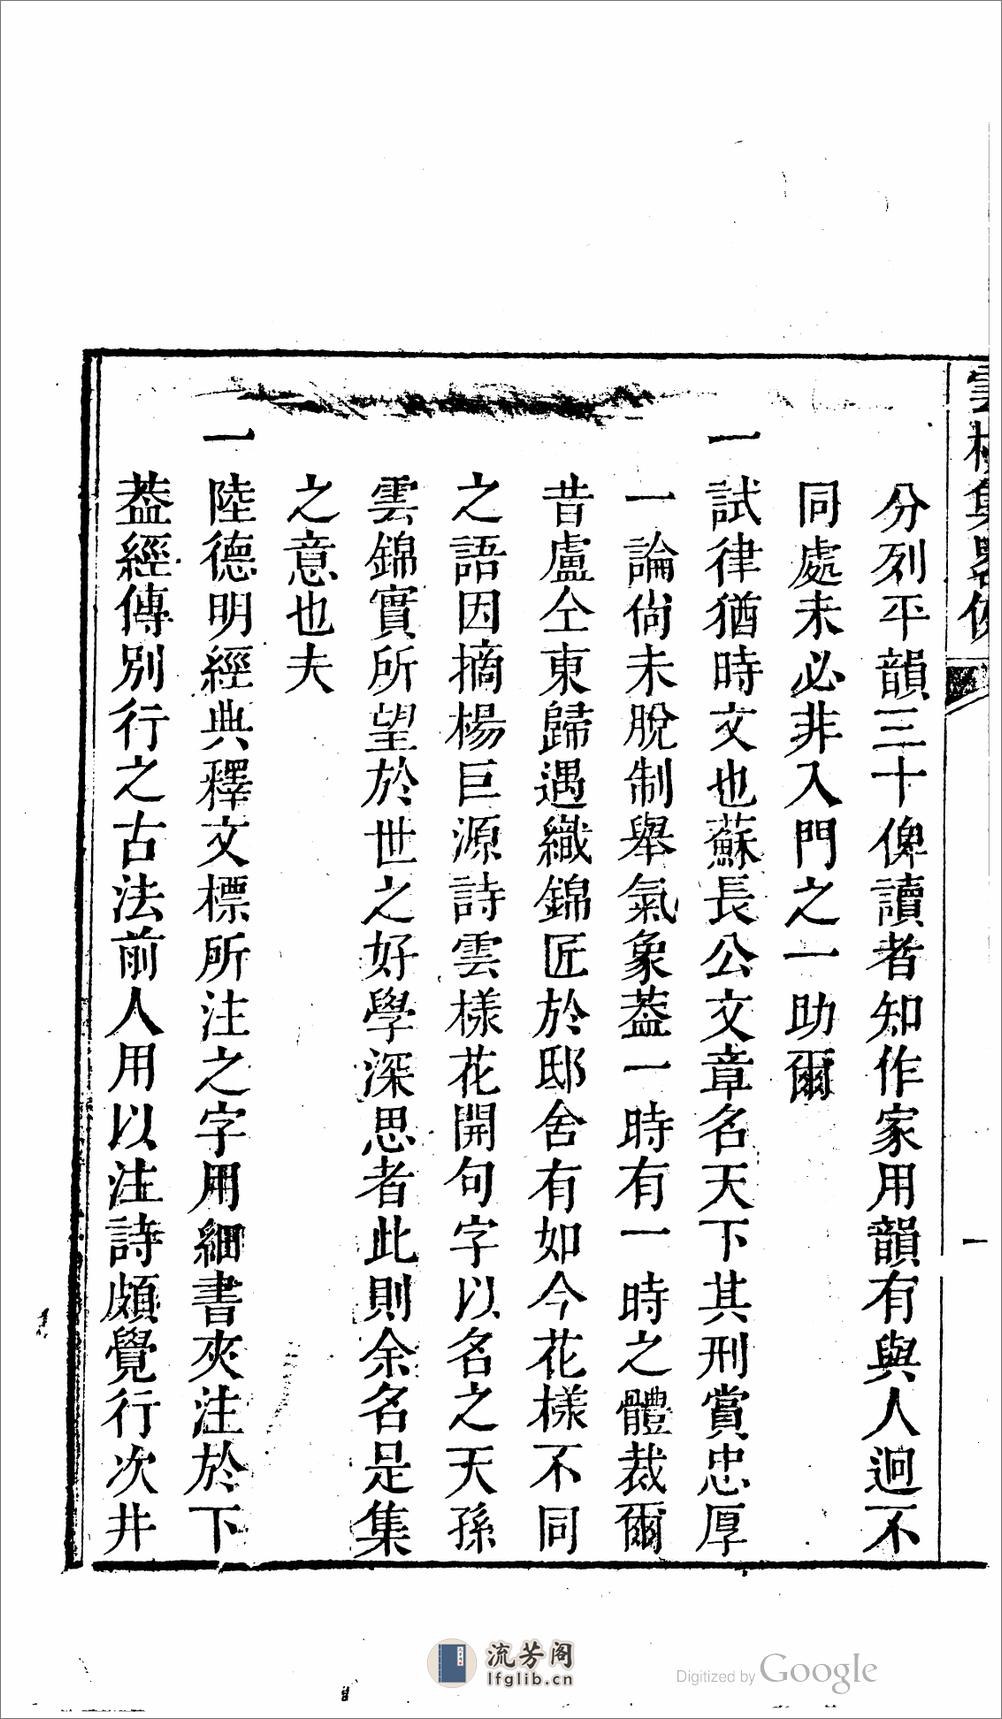 分列平韻三十俾讀者知作家用韻有與人迥不
同處未必非入門之一助爾
一試律猶時文也蘇長公文章名天下其刑賞忠厚
一論尙未脫制舉氣象葢一時有一時之體裁爾
昔盧仝東歸遇織錦匠於邸舍有如今花樣不同
之語因摘楊巨源詩雲樣花開句字以名之天孫
雲錦實所望於世之好學深思者此則余名是集
之意也夫
一陸德明經典釋文標所注之字用細書夾注於下
葢經傳別行之古法前人用以注詩頗覺行次井
一
流芳阁
lfglib.cn
Digitized by Google